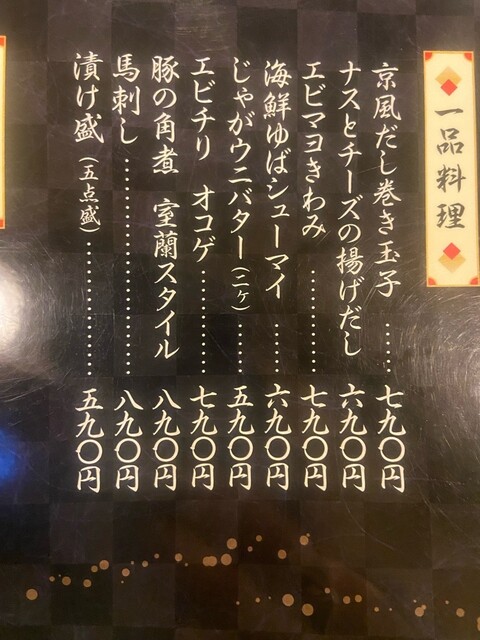 一品料理
京風だし巻き玉子……七九〇円
ナスとチーズの揚げだし 六九〇円
エビマヨきわみ………七九〇円
海鮮ゆばシューマイ……六九〇円
じゃがウニバター(二ヶ)……五九〇円
エビチリ オコゲ………七九〇円
豚の角煮 室蘭スタイル 八九〇円
馬刺し……………………八九〇円
漬け盛(五点盛)……………五九〇円